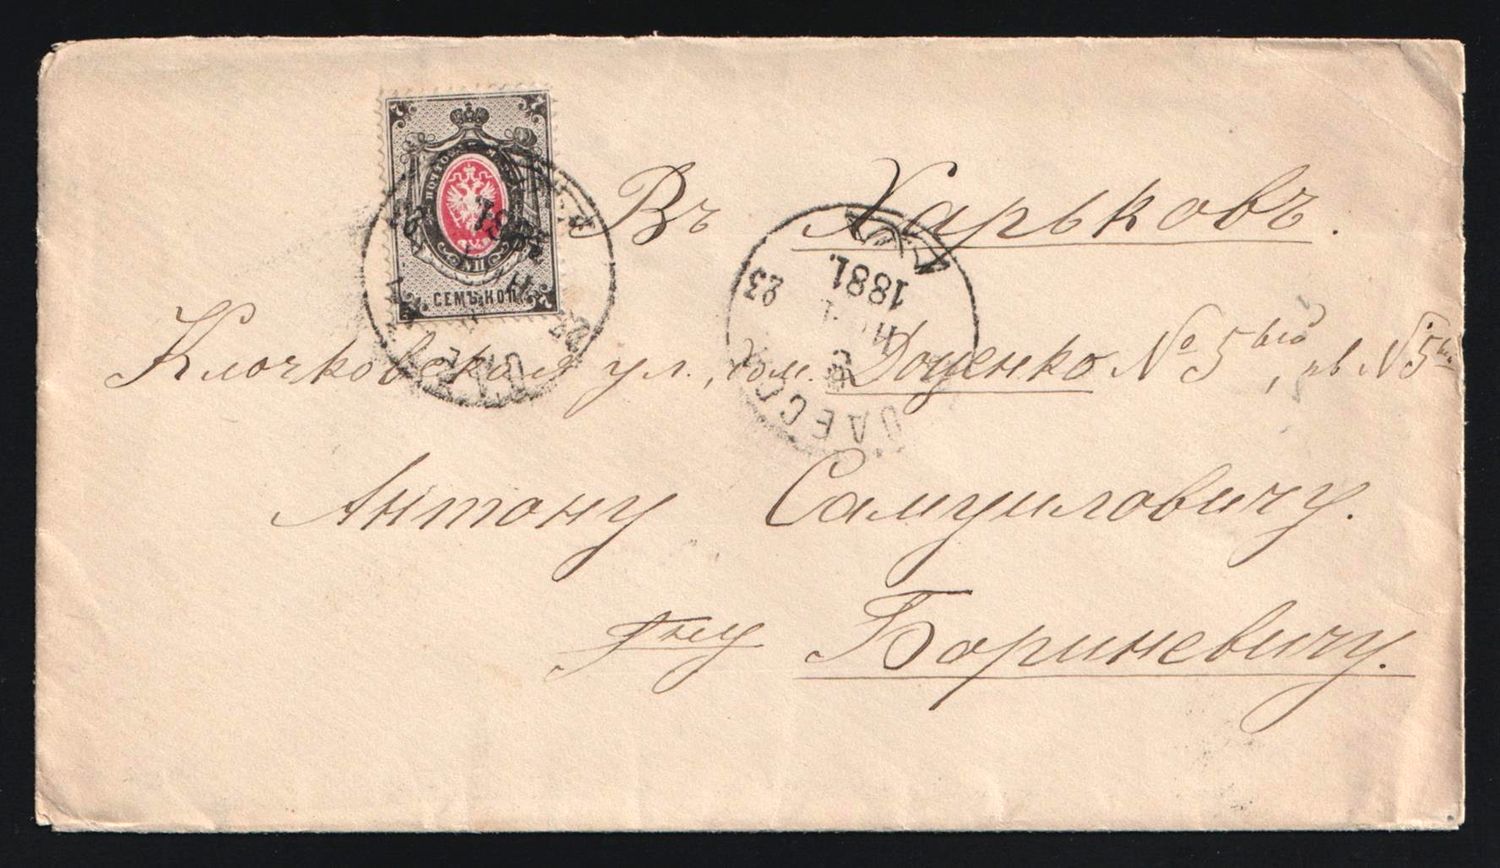 Въ Харьковъ.
Клочковская ул., дом. Доценко № 5ый, кв № 5
Антону Самуиловичу.
Гну Бориневичу.
СЕМЬ КОП.
ОДЕССА
23
1881.